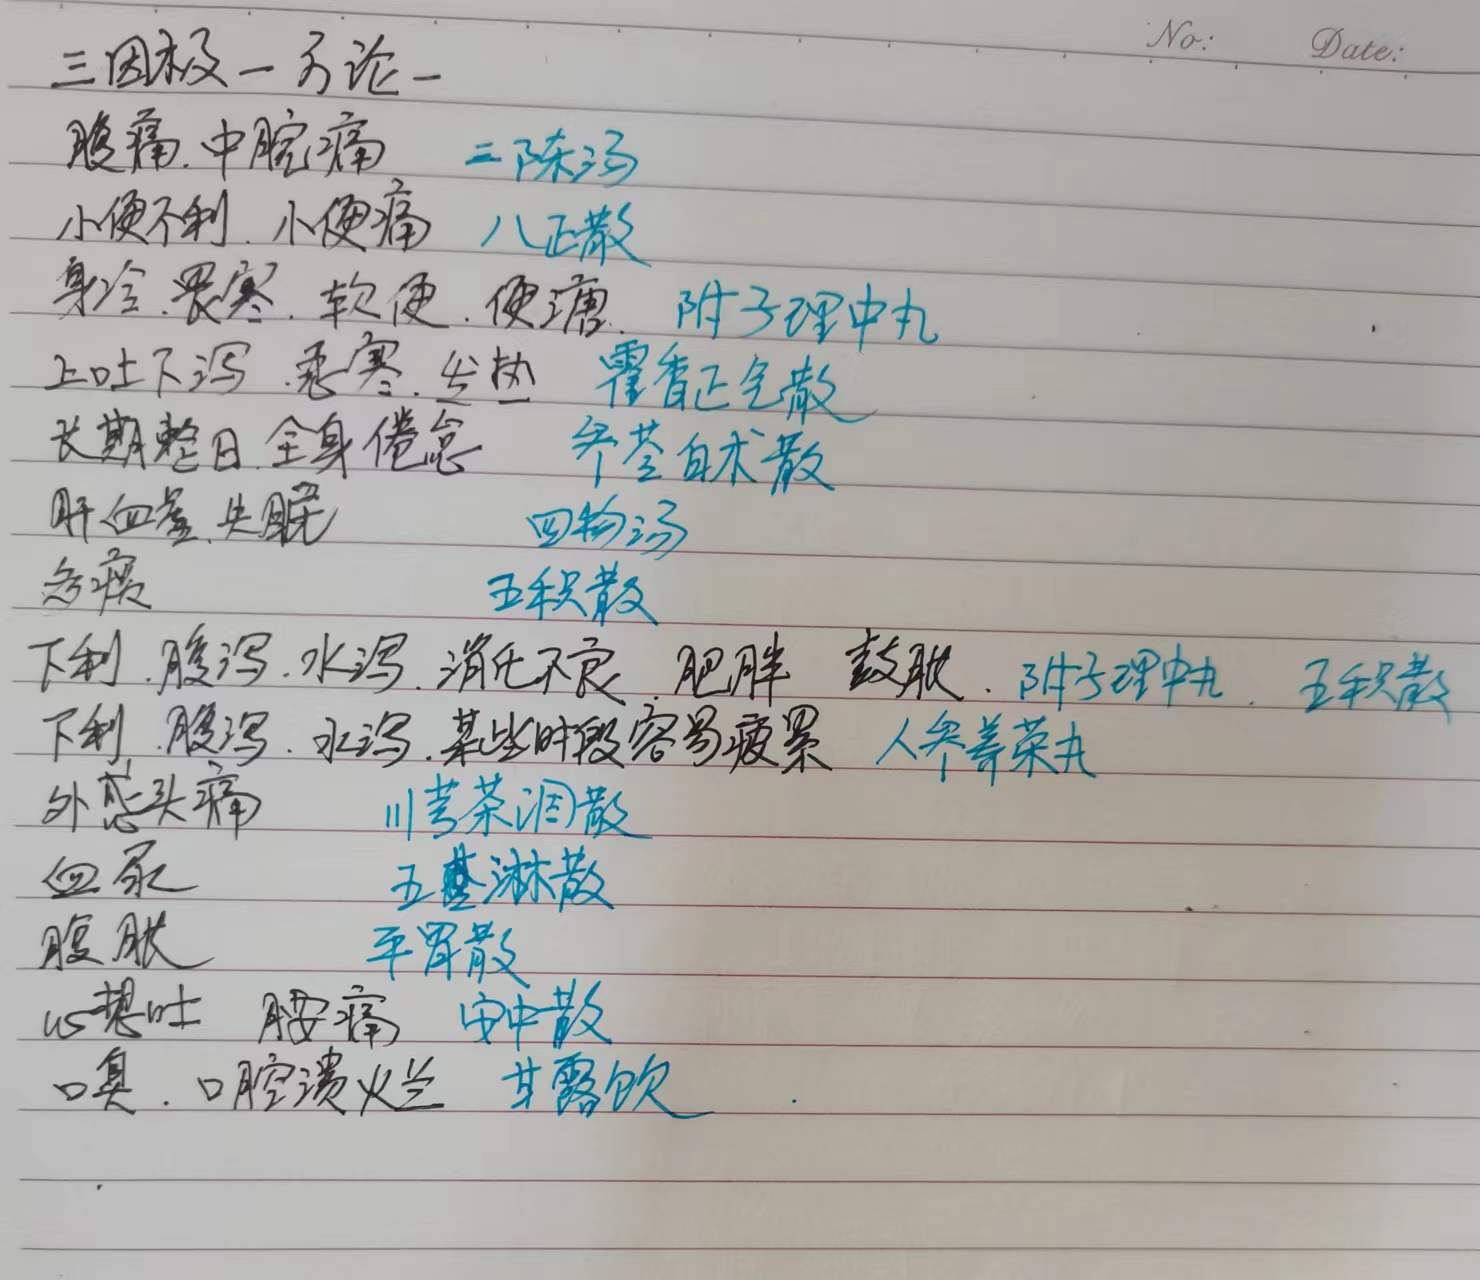 No: Date:
三因极一方论一
腹痛.中脘痛 二陈汤
小便不利.小便痛 八正散
身冷.畏寒.软便.便溏. 附子理中丸
上吐下泻.恶寒.发热 霍香正气散
长期整日.全身倦怠 参苓白术散
肝血虚.失眠 四物汤
多痰 五积散
下利.腹泻.水泻.消化不良.肥胖 鼓胀.附子理中丸.五积散
下利.腹泻.水泻.某些时段容易疲累 人参养荣丸
外感头痛 川芎茶调散
血尿 五淋散
腹胀 平胃散
心想吐 腰痛 安中散
口臭.口腔溃烂 甘露饮